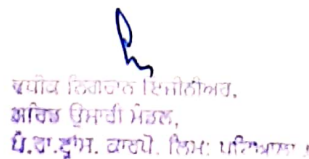 ਵਧੀਕ ਨਿਗਰਾਨ ਇੰਜੀਨੀਅਰ,
ਗਰਿਡ ਉਸਾਰੀ ਮੰਡਲ,
ਪੰ.ਰਾ.ਟ੍ਰਾਂਸ. ਕਾਰਪੋ. ਲਿਮ: ਪਟਿਆਲਾ।